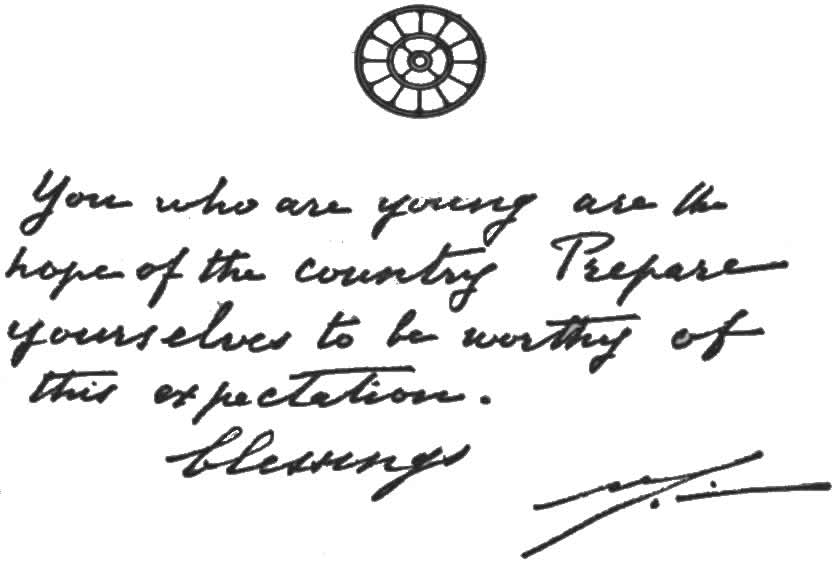 You who are young are the
hope of the country Prepare
yourselves to be worthy of
this expectation.
blessings